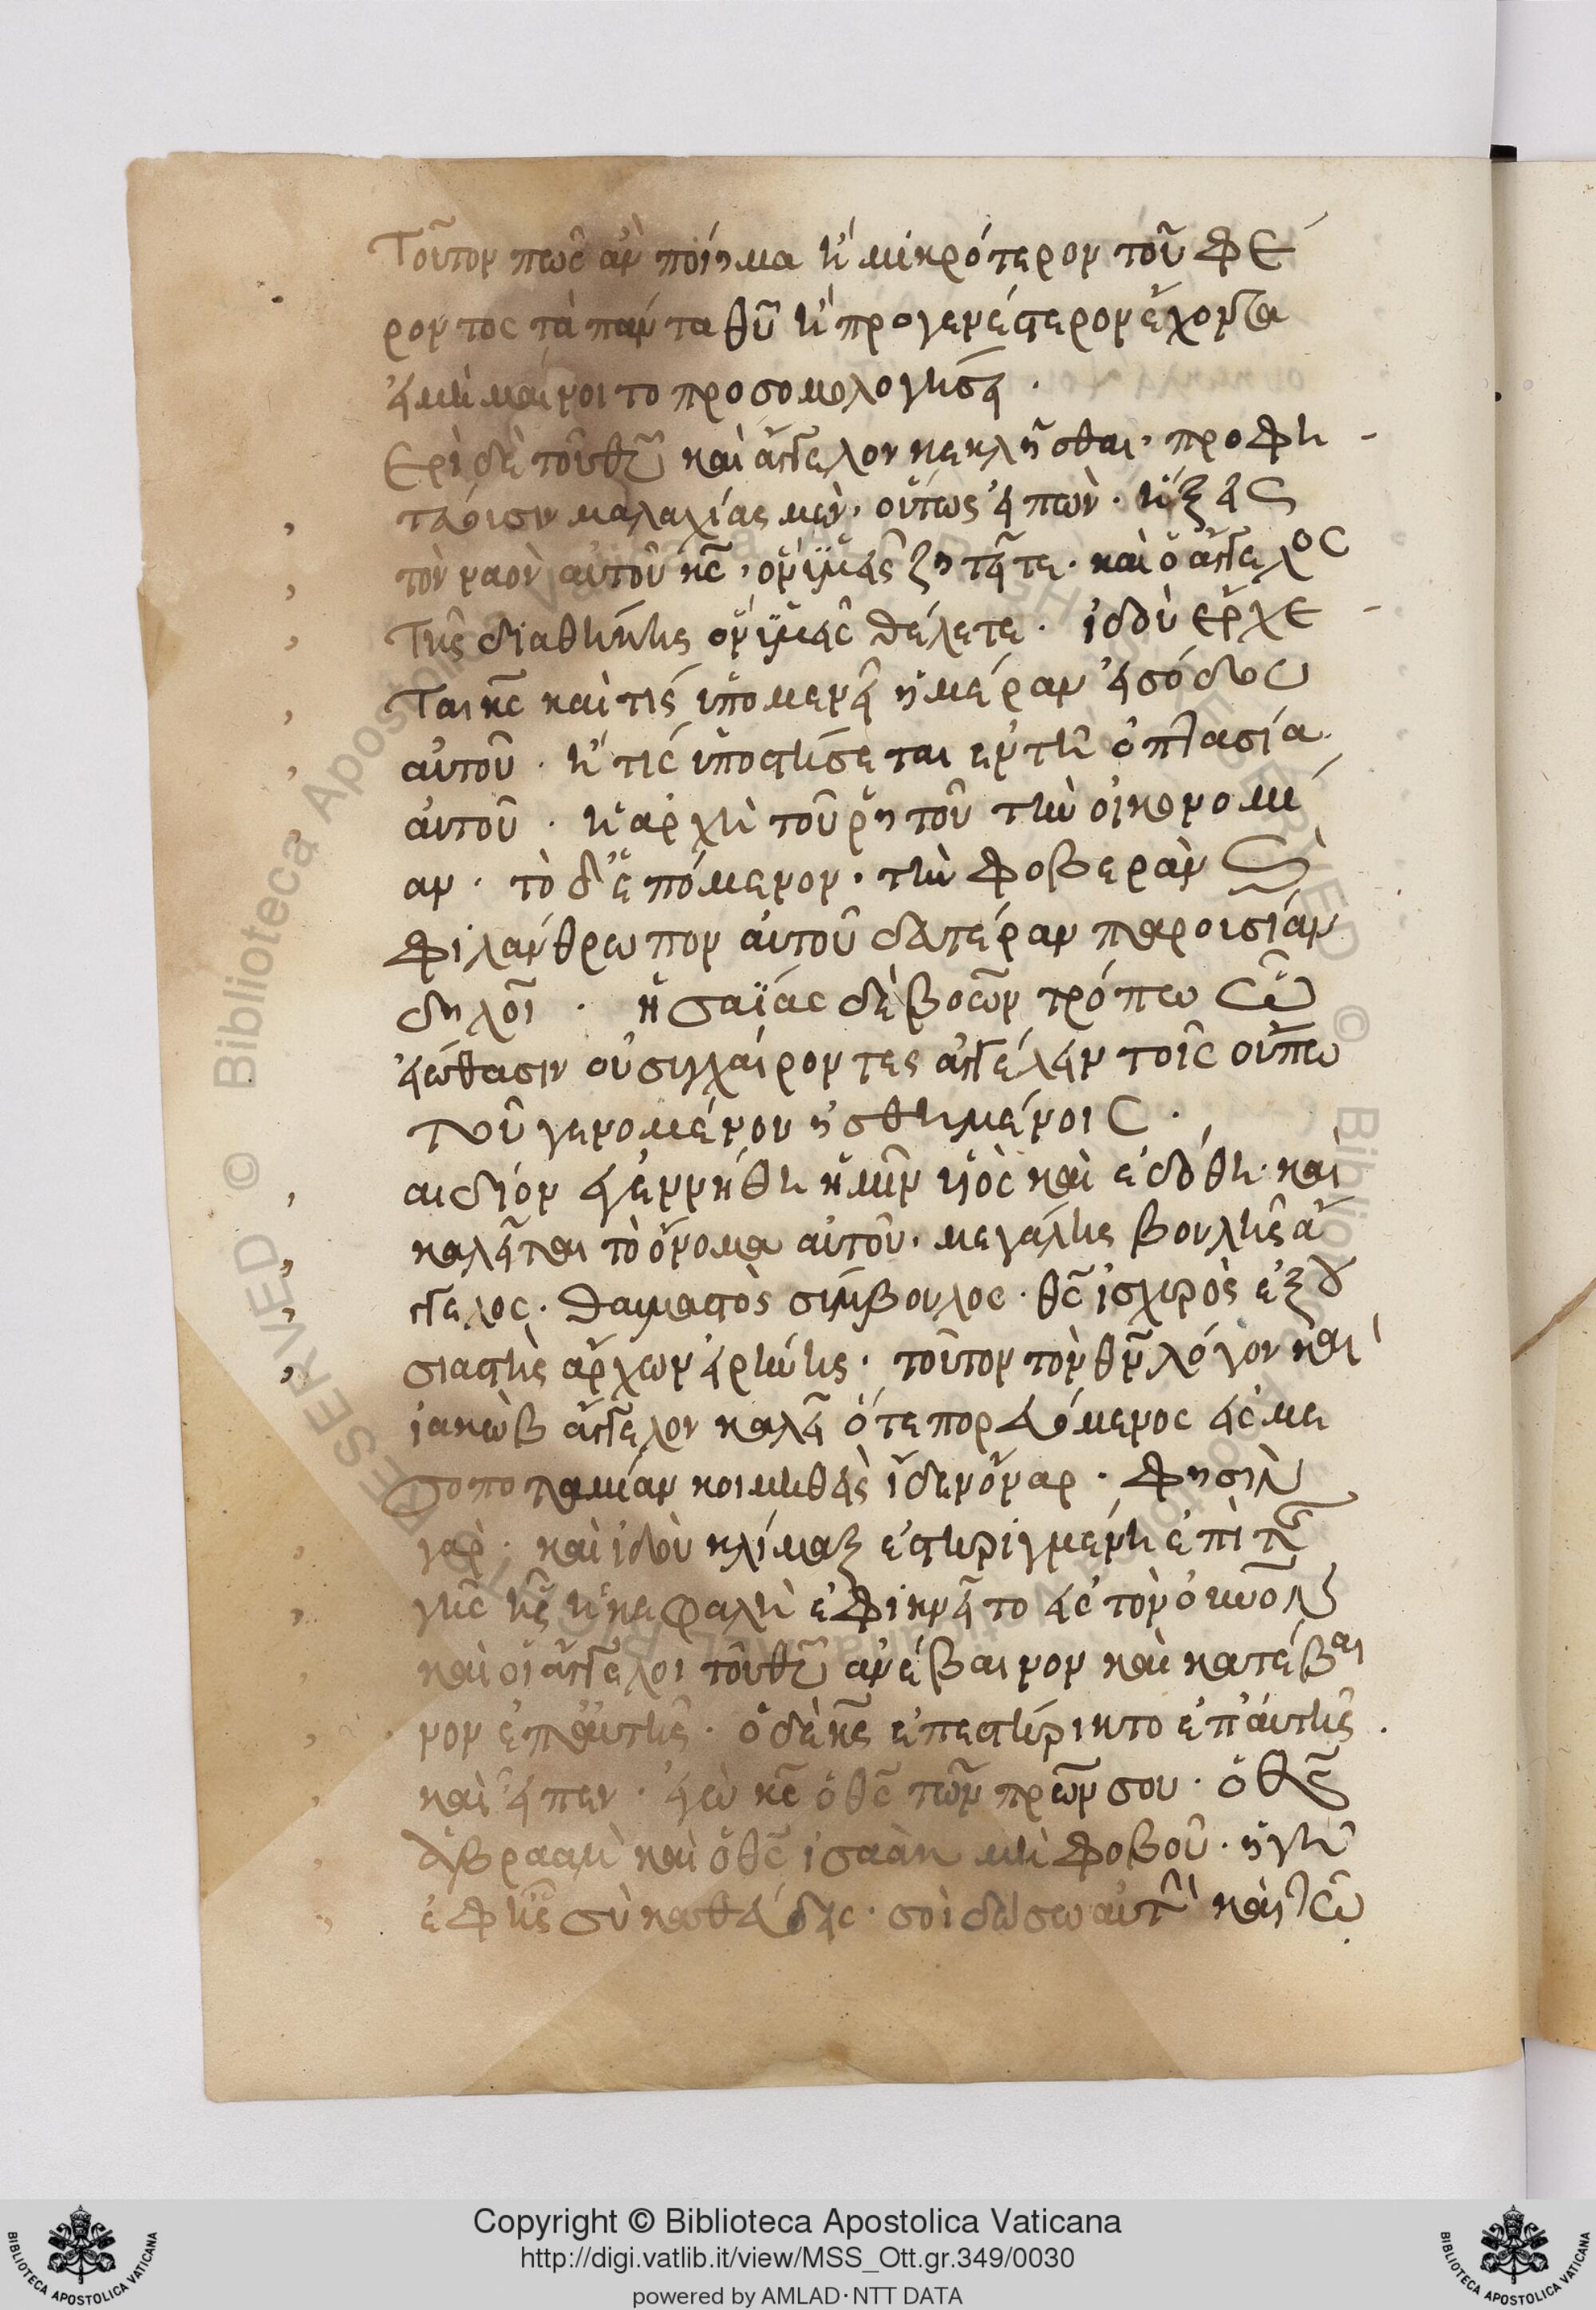 Τοῦτον πῶς ἂν ποίημα ἢ μικρότερον τοῦ φέ
ροντος τὰ πάντα θυ ἢ προγενέστερον ἔχοντα
εἰ μὴ μαίνοιτο προσομολογήσει ·
Ἐρεῖ δὲ τοῦ θυ καὶ ἄγγελον κεκλῆσθαι, προφη -
τεύουσιν μαλαχίας μὲν, οὕτως εἰπὼν · ἥξει εἰς
τὸν ναὸν αὐτοῦ κς, ὃν ὑμεῖς ζητεῖτε · καὶ ὁ ἄγγελος
τῆς διαθήκης ὃν ὑμεῖς θέλετε · ἰδοὺ ἔρχε -
ται κς καὶ τίς ὑπομενεῖ ἡμέραν εἰσόδου
αὐτοῦ · ἢ τίς ὑποστήσεται ἐν τῆ ὀπτασία
αὐτοῦ · ἡ ἀρχὴ τοῦ ῥητοῦ τὴν οἰκονομί
αν · τὸ δ' ἑπόμενον · τὴν φοβερὰν
φιλάνθρωπον αὐτοῦ δευτέραν παρουσίαν
δηλοῖ · ἡσαΐας δὲ βοῶν τρόπω ὧ
εἰώθασιν οὐ συγχαίροντες ἀγγέλειν τοῖς οὔπω
τοῦ γενομένου ἠσθημένοις ·
παιδίον ἐγεννήθη ἡμῖν υἱὸς καὶ ἐδόθη · καὶ
καλεῖται τὸ ὄνομα αὐτοῦ · μεγάλης βουλῆς ἄγ
γελος · θαυμαστὸς σύμβουλος · θς ἰσχυρὸς ἐξου
σιαστὴς ἄρχων εἰρήνης · τοῦτον τὸν θν λόγον καὶ
ἰακὼβ ἄγγελον καλεῖ ὅτε πορευόμενος εἰς με
σοποταμίαν κοιμηθεὶς ἴδεν ὄναρ · φησὶ
γάρ · καὶ ἰδοὺ κλίμαξ ἐστηριγμένη ἐπὶ τῆς
γῆς ἧς ἡ κεφαλὴ ἐφικνεῖτο εἰς τὸν οὐνον
καὶ οἱ ἄγγελοι τοῦ θυ ἀνέβαινον καὶ κατέβαι
νον ἐπ' αὐτῆς · ὁ δὲ κς ἐπεστήρικτο ἐπ' αὐτῆς .
καὶ εἶπεν · ἐγὼ κς ὁ θς τῶν πρων σου · ὁ θς
ἀβραὰμ καὶ ὁ θς ἰσαὰκ μὴ φοβοῦ · ἡ γῆ
ἐφ' ἧς σὺ καθεύδεις · σοὶ δώσω αὐτὴν καὶ τῶ
Copyright © Biblioteca Apostolica Vaticana
http://digi.vatlib.it/view/MSS_Ott.gr.349/0030
powered by AMLAD·NTT DATA